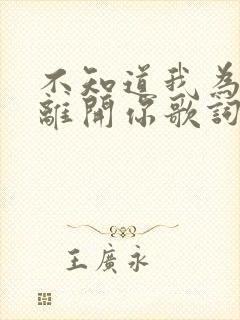 不知道我為
離開你歌詞
王廣永